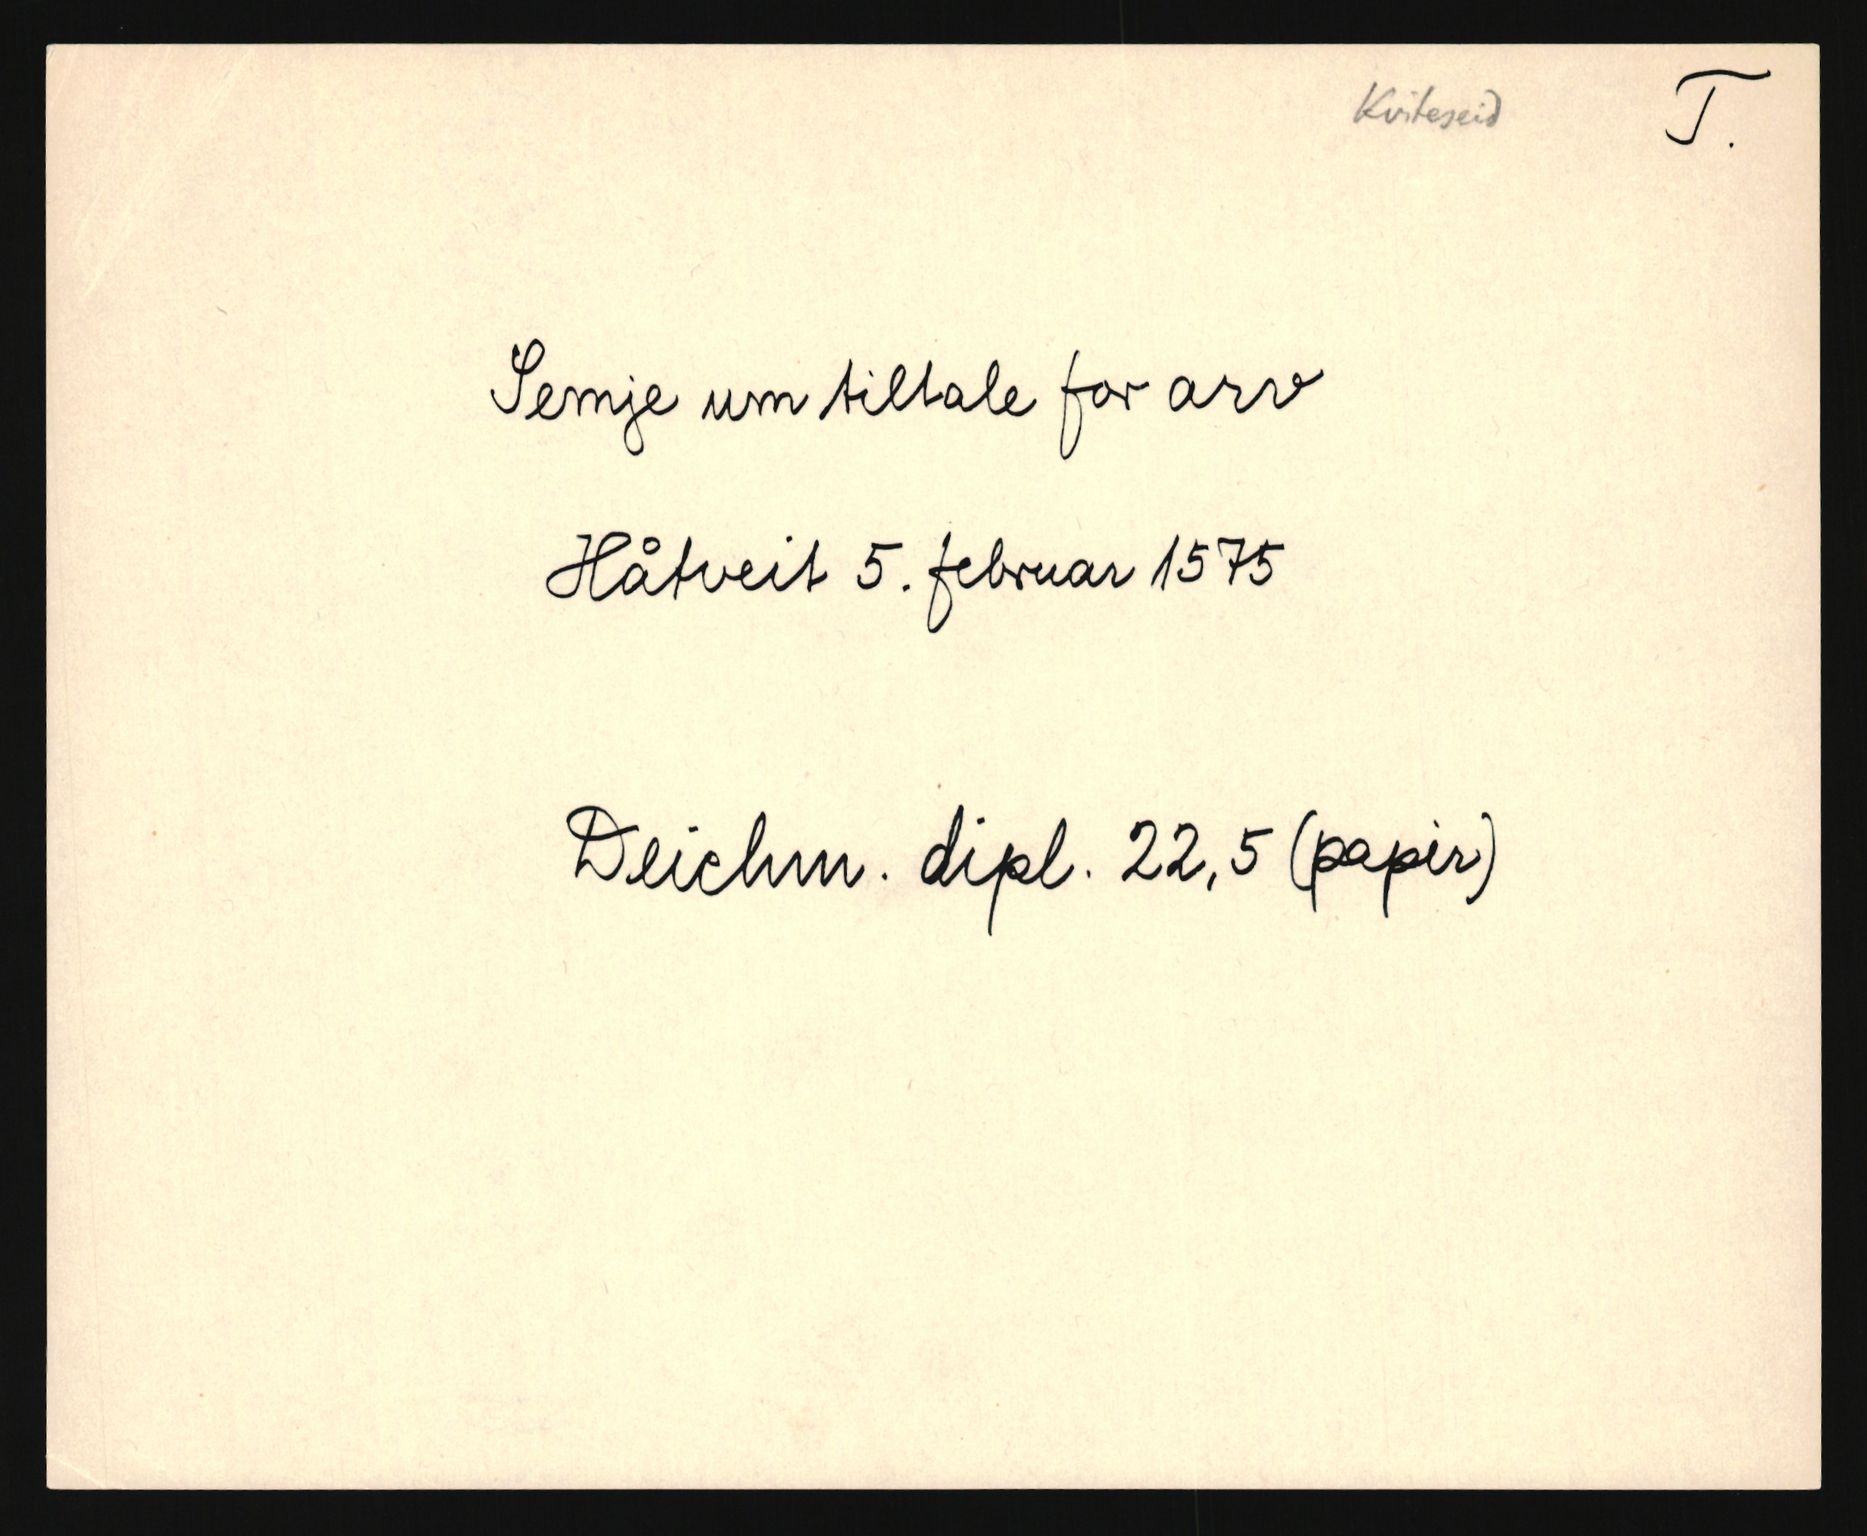 Kviteseid T.
Semje um tiltale for arv
Håtveit 5. februar 1575
Deichm. dipl. 22,5 (papir)